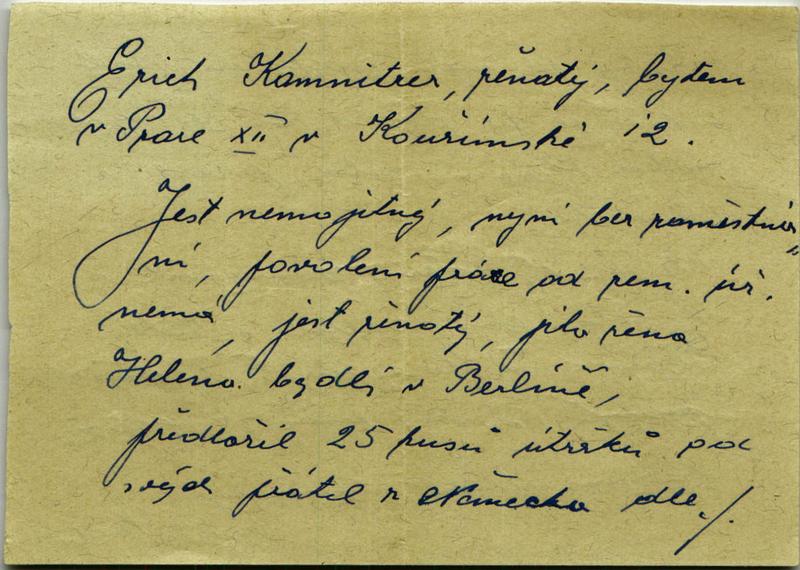 Erich Kamnitzer, ženatý, bytem
v Praze XII v Kouřimské 12.
Jest nemajetný, nyní bez zaměstná„
ní, povolení práce od zem. úř.
nemá, jest ženatý, jeho žena
Helena bydlí v Berlíně,
předložil 25 kusů útržků od
svých přátel z Německa dle ./.